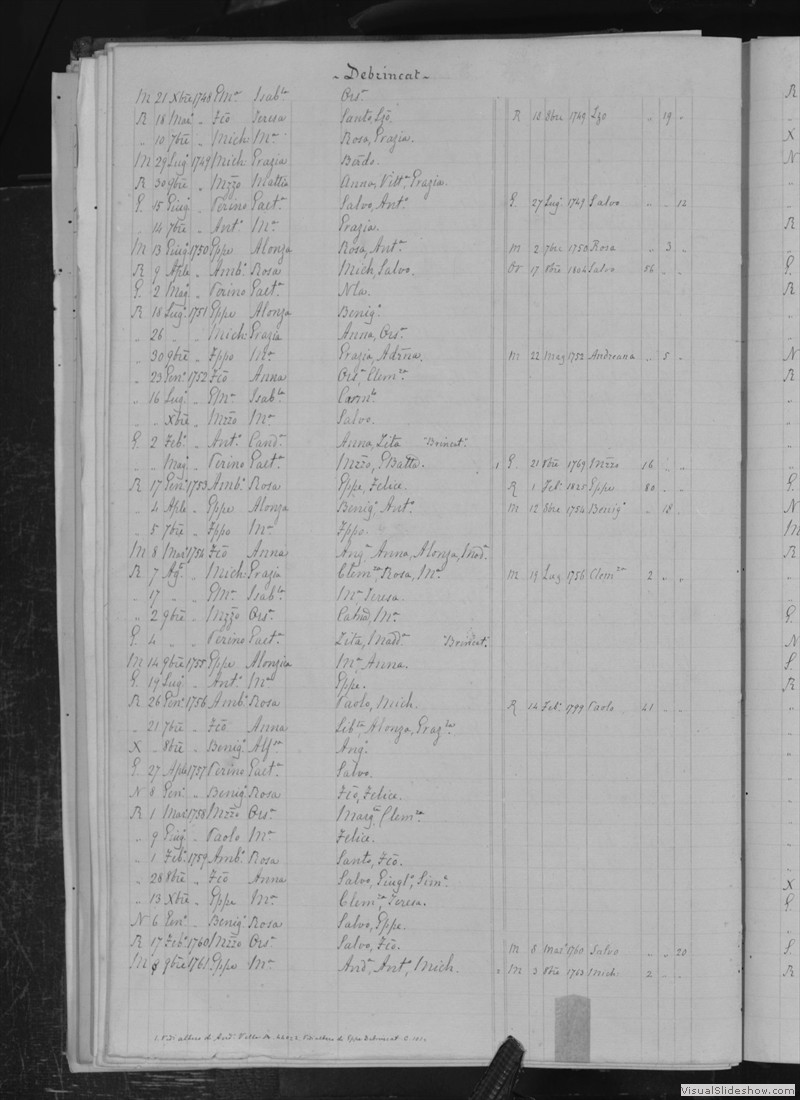 - Debrincat -
M 21 Xbre 1748 Gma Isabla Orsa
R 18 Mar " Fco Teresa Santo, Lzo. R 10 9bre 1749 Lzo " 19 "
" 10 7bre " Mich: Ma Rosa, Grazia.
M 29 Lug 1749 Mich Grazia Bardo.
R 30 9bre " Mzzo Mattia Anna, Vitta, Grazia.
G 15 Giug " Perino Gaeta Salvo, Anto G. 27 Lug 1749 Salvo " " 12
" 14 7bre " Anto Ma Grazia.
M 13 Giug 1750 Gppe Alonza Rosa, Anta M 2 7bre 1750 Rosa " 3 "
R 9 Aple " Ambo Rosa Mich, Salvo. 17 8bre 1804 Salvo 56 " "
G 2 Mag " Perino Gaeta Nla.
R 18 Lug 1751 Gppe Alonza Benigo
" 26 " " Mich: Grazia Anna, Orsa
" 30 9bre " Fppo Ma Grazia, Adrna. M 22 Mag 1752 Andreana " 5 "
" 23 Geno 1752 Fco Anna Orsa, Clemza
" 16 Lug " Gma Isabla Carmlo
" " Xbre " Mzzo Ma Salvo.
G 2 Febo " Anto Canda Anna, Zita "Brincat"
" " Mag " Perino Gaeta Mzzo, GBatta. 1 G. 21 8bre 1769 Mzzo 16 " "
R 17 Geno 1753 Ambo Rosa Gppe, Felice. R 1 Feb 1825 Gppe 80 " "
" 4 Aple " Gppe Alonza Benigo Anto M 12 8bre 1754 Benigo " 18 "
" 5 7bre " Fppo Ma Fppo.
M 8 Mar 1754 Fco Anna Ango Anna, Alonza, Mada
R 7 Ago " Mich: Grazia Clemza, Rosa, Ma M 19 Lug 1756 Clemza 2 " "
" 17 " " Gma Isabla Ma Teresa.
" 2 9bre " Mzzo Orsa Catna, Ma
G 4 " " Perino Gaeta Zita, Madda "Brincat"
M 14 9bre 1755 Gppe Alonzia Ma Anna.
G 19 Lug " Anto Ma Gppe.
R 26 Geno 1756 Ambo Rosa Paolo, Mich. R 14 Febo 1799 Paolo 41 " "
" 21 7bre " Fco Anna Alonza, Grazla
X " 8bre " Benigo Alfsa Ango
G 27 Aple 1757 Perino Gaeta Salvo.
N 8 Geno " Benigo Rosa Fco, Felice.
R 1 Mar 1758 Mzzo Orsa Marga Clemza
" 9 Giug " Paolo Ma Felice.
" 1 Febo 1759 Ambo Rosa Santo, Fco.
" 28 8bre " Fco Anna Salvo,
" 13 Xbre " Gppe Ma Clemza, Teresa.
N 6 Geno " Benigo Rosa Salvo, Gppe.
R 17 Febo 1760 Mzzo Orsa Salvo, Fco. M 8 Mar 1760 Salvo " " 20
M 9 9bre 1761 Gppe Ma Anda, Anto, Mich. 2 M 3 8bre 1763 Mich: 2 " "
VisualSlideshow.com